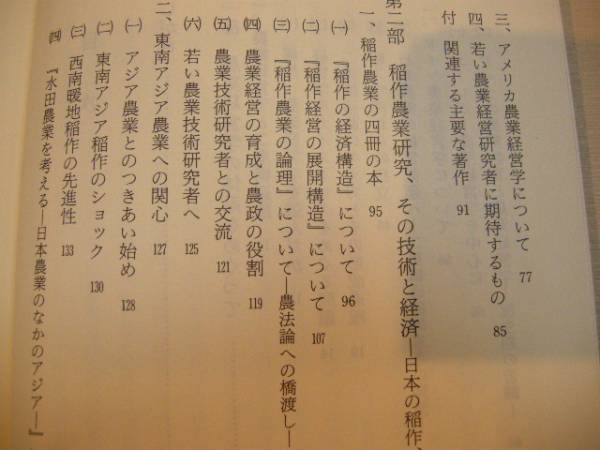 三、アメリカ農業経営学について 77
四、若い農業経営研究者に期待するもの 85
付 関連する主要な著作 91
第二部 稲作農業研究、その技術と経済—日本の稲作、
一、稲作農業の四冊の本 95
㈠ 『稲作の経済構造』について 96
㈡ 『稲作経営の展開構造』について 107
㈢ 『稲作農業の論理』について—農法論への橋渡し—
㈣ 農業経営の育成と農政の役割 119
㈤ 農業技術研究者との交流 121
㈥ 若い農業技術研究者へ 125
二、東南アジア農業への関心 127
㈠ アジア農業とのつきあい始め 128
㈡ 東南アジア稲作のショック 130
㈢ 西南暖地稲作の先進性 133
㈣ 『水田農業を考える—日本農業のなかのアジア—』